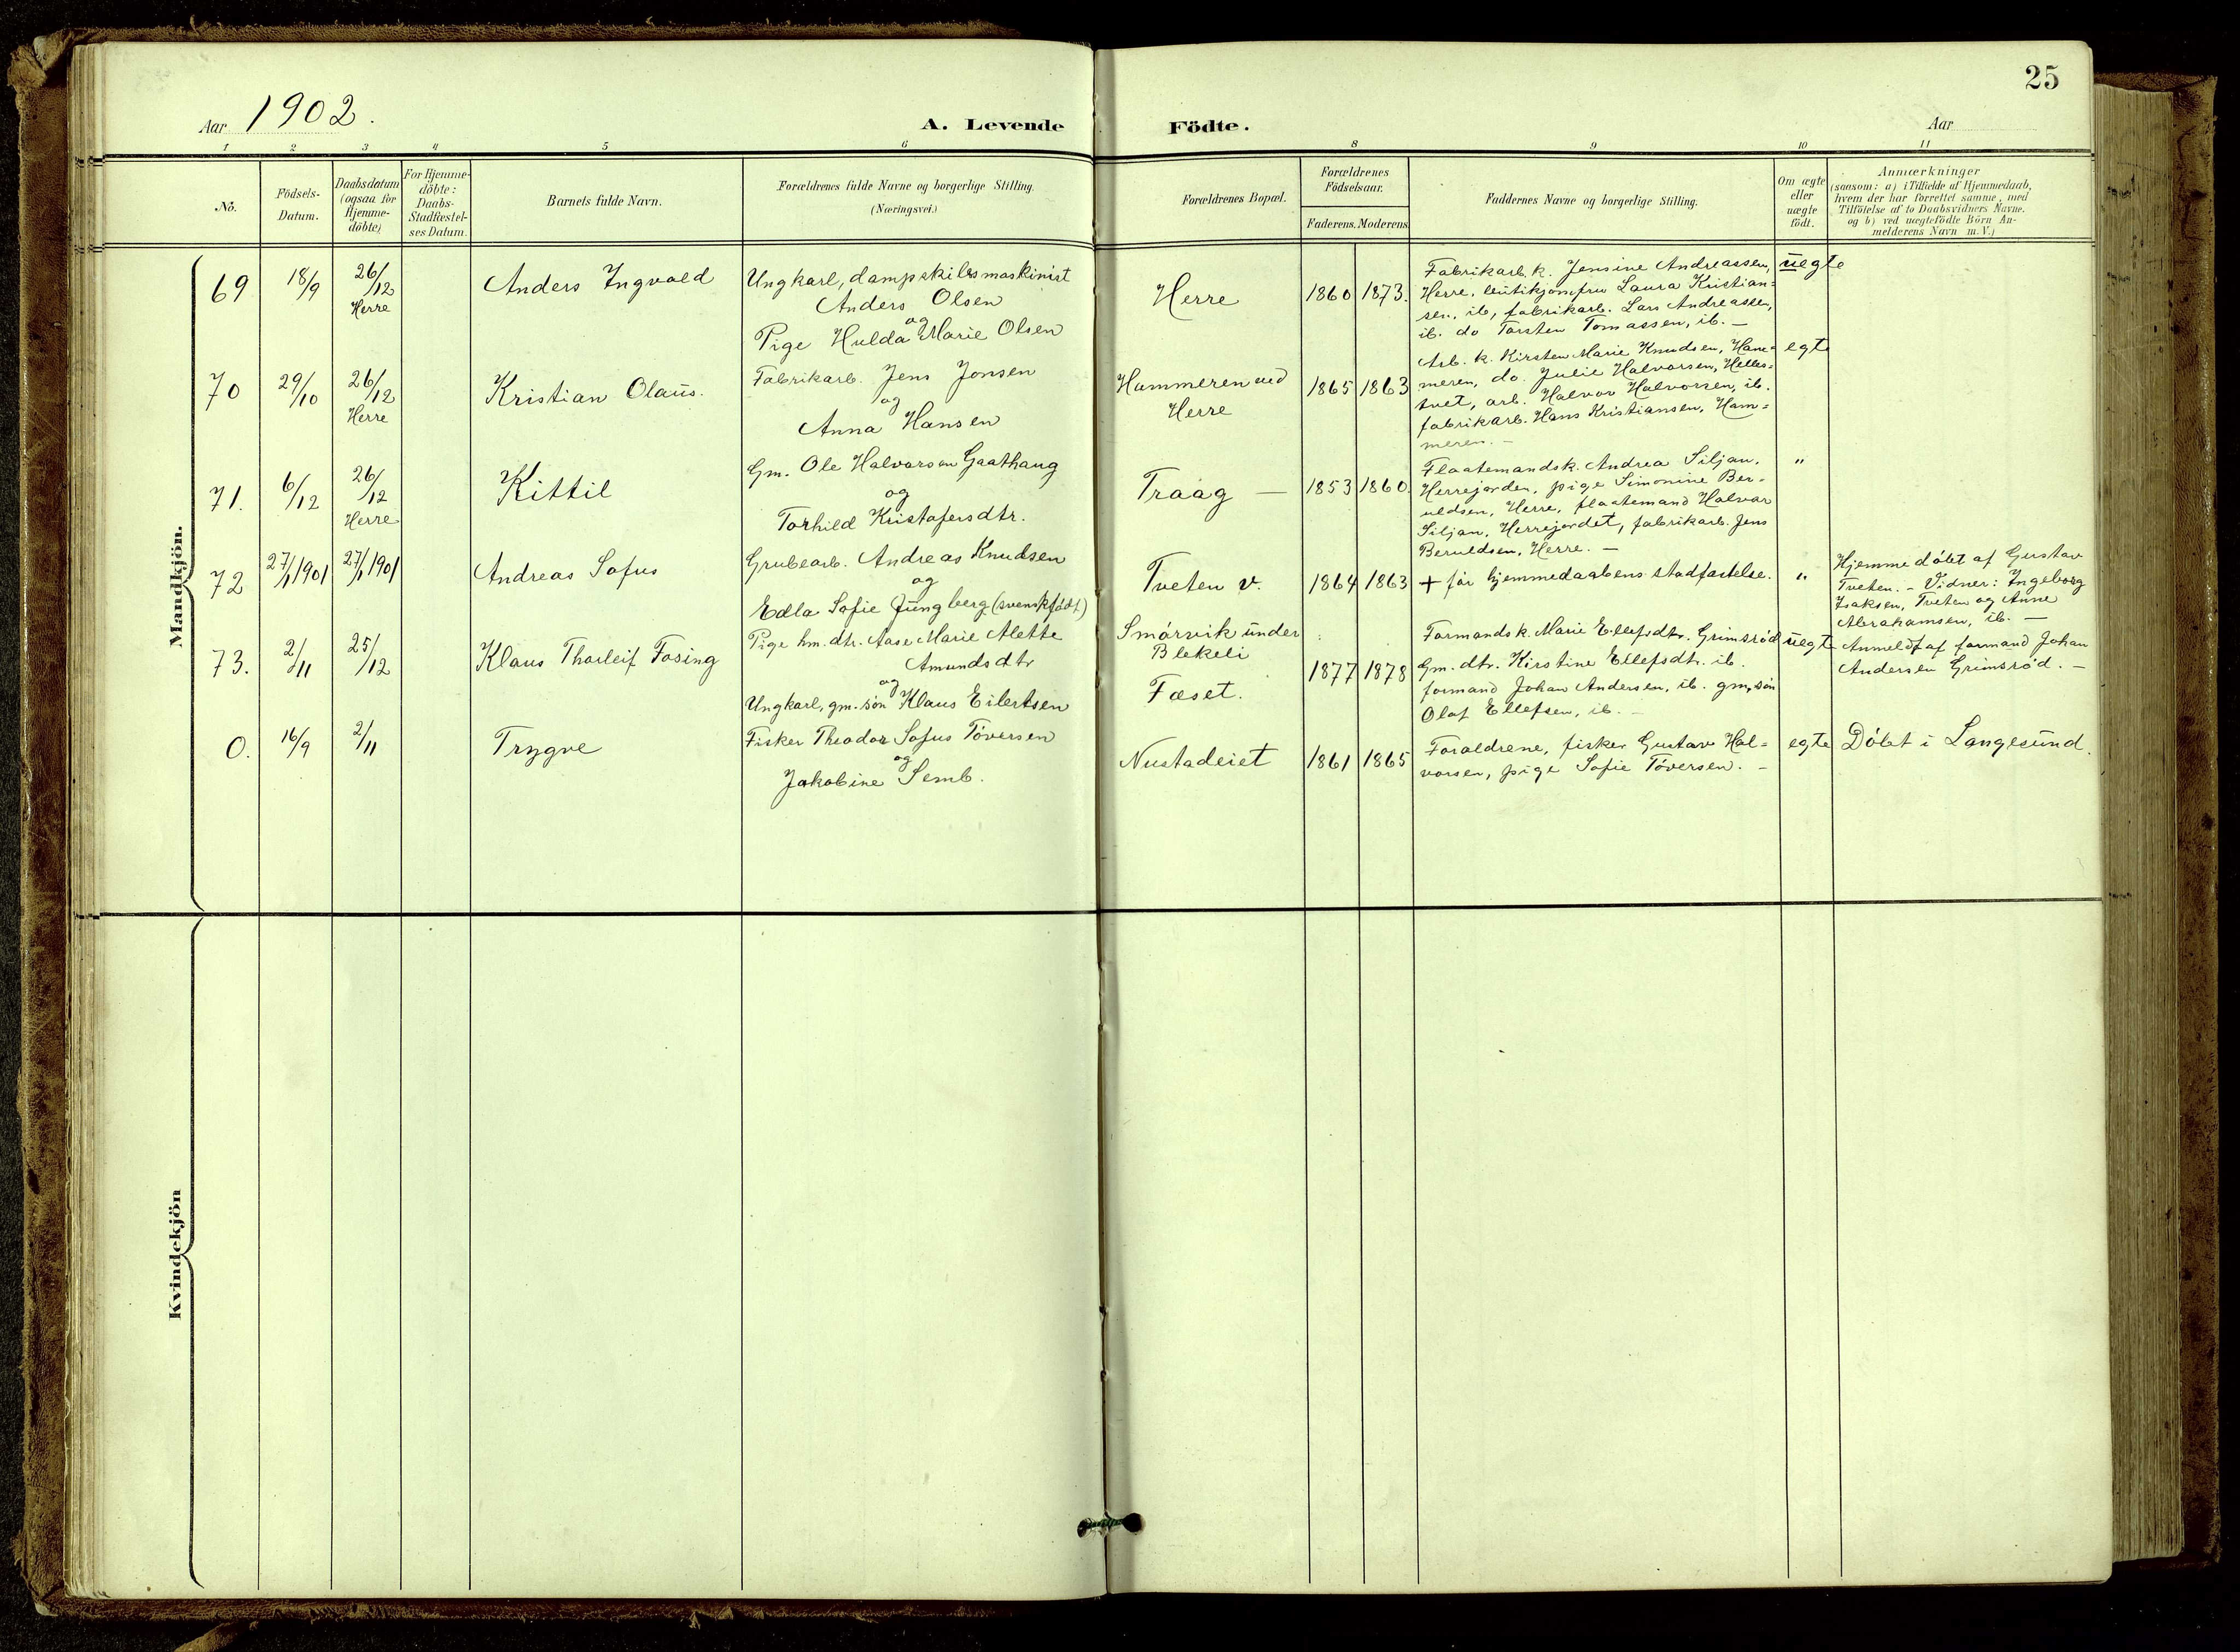 25
Aar 1902.
A. Levende Födte.
Aar
1 2 3 4 5 6 8 9 10 11
No.
Födsels-
Datum.
Daabsdatum
(ogsaa for
Hjemme-
döbte)
For Hjemme-
döbte:
Daabs-
Stadfæstel-
ses Datum.
Barnets fulde Navn.
Forældrenes fulde Navne og borgerlige Stilling.
(Næringsvei.)
Forældrenes Bopæl.
Forældrenes
Födselsaar.
Faderens. Moderens.
Faddernes Navne og borgerlige Stilling.
Om ægte
eller
uægte
födt.
Anmærkninger
(saasom: a) i Tilfælde af Hjemmedaab,
hvem der har forrettet samme, med
Tilföielse af to Daabsvidners Navne.
og b) ved uægtefödte Börn An-
melderens Navn m. V.)
Mandkjön.
69
18/9
26/12
Herre
Anders Ingvald
Ungkarl, dampskibsmaskinist
Anders Olsen
og
Pige Hulda Marie Olsen
Herre
1860 1873.
Fabrikarb. k. Jensine Andreassen,
Herre, butikjomfru Laura Kristian=
sen, ib, fabrikarb. Lars Andreassen,
ib. do Torsten Tomassen, ib. —
uegte
70
29/10
26/12
Herre
Kristian Olaus.
Fabrikarb. Jens Jonsen
og
Anna Hansen
Hammeren ved
Herre
1865 1863
Arb. k. Kirsten Marie Knudsen, Ham=
meren, do. Julie Halvorsen, Helles=
tvet, arb. Halvor Halvorsen, ib.
fabrikarb. Hans Kristiansen, Ham=
meren. —
egte
71.
6/12
26/12
Herre
Kittil
Gm. Ole Halvorsen Gaathaug
og
Torhild Kristofersdtr.
Traag —
1853 1860.
Flaatemandsk. Andrea Siljan,
Herrejordet, pige Simonine Ber=
uldsen, Herre, flaatemand Halvor
Siljan, Herrejordet, fabrikarb. Jens
Beruldsen, Herre. —
"
72
27/1 1901
27/1 1901
Andreas Sofus
Grubearb. Andreas Knudsen
og
Edla Sofie Jungberg (svenskfödt)
Tveten v.
1864 1863
+ før hjemmedaabens stadfæstelse.
"
Hjemmedøbt af Gustav
Tveten. — Vidner: Ingeborg
Isaksen, Tveten og Anne
Abrahamsen, ib. —
73.
2/11
25/12
Klaus Thorleif Fosing
Pige hm. dtr. Aase Marie Alette
Amundsdtr
og
Ungkarl, gm. søn Klaus Eilertsen
Smørvik under
Blekeli
Fæset.
1877 1878
Formandsk. Marie Ellefsdtr. Grimsrød
Gm. dtr. Kirstine Ellefsdtr. ib.
formand Johan Andersen, ib. gm. søn
Olaf Ellefsen, ib. —
uegte
Anmeldt af formand Johan
Andersen Grimsrød. —
0.
16/9
2/11
Trygve
Fisker Theodor Sofus Tøversen
og
Jakobine Semb.
Nustadeiet
1861 1865
Foraldrene, fisker Gustav Hal=
vorsen, pige Sofie Tøversen. —
egte
Døbt i Langesund.
Kvindekjön